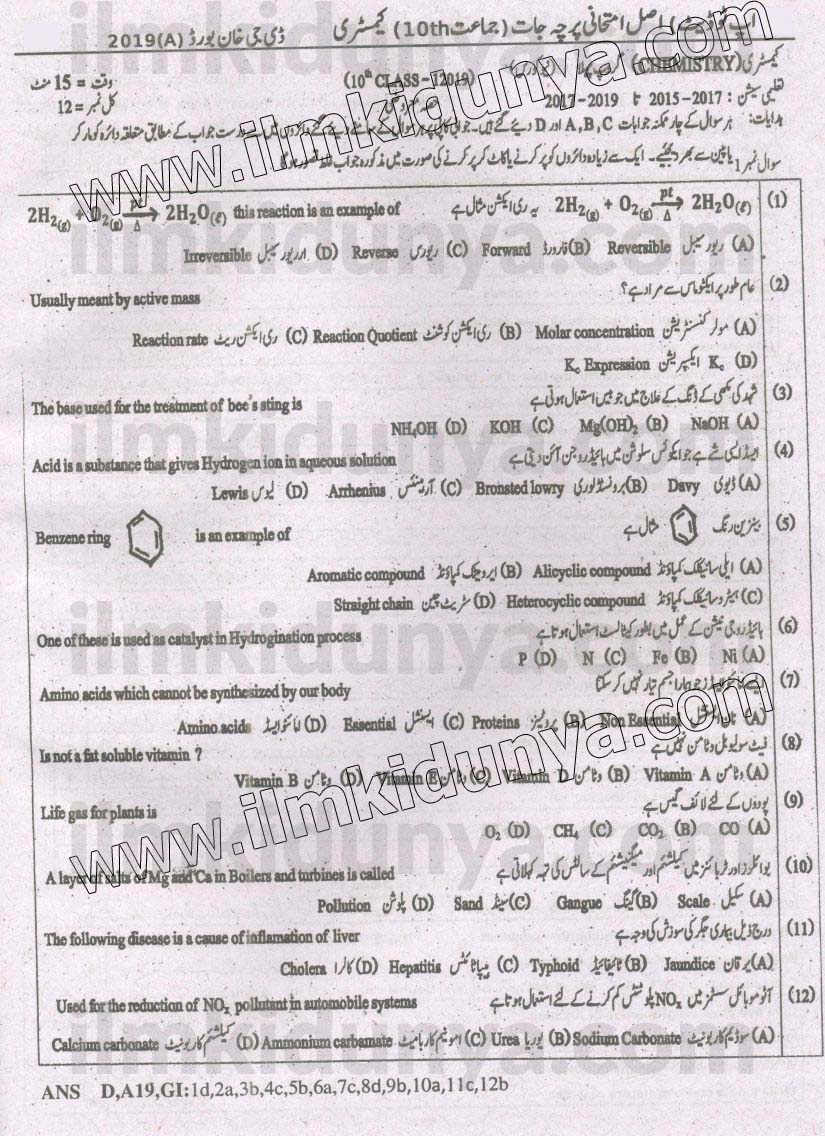 اپ ٹو ڈیٹ اصل امتحانی پرچہ جات (جماعت 10th) کیمسٹری ڈی جی خان بورڈ 2019(A)
کیمسٹری (CHEMISTRY) گروپ پہلا (10th CLASS – 12019) وقت = 15 منٹ
تعلیمی سیشن : 2015-2017 تا 2017-2019 کل نمبر = 12
ہدایات: ہر سوال کے چار ممکنہ جوابات A,B,C اور D دیئے گئے ہیں۔ جوابی کاپی پر ہر سوال کے سامنے دیئے گئے دائروں میں سے درست جواب کے مطابق متعلقہ دائرہ کو مارکر
سوال نمبر 1 یا پین سے بھر دیجئے۔ ایک سے زیادہ دائروں کو پر کرنے یا کاٹ کر پر کرنے کی صورت میں مذکورہ جواب غلط تصور ہوگا
(1) یہ ری ایکشن مثال ہے 2H2(g) + O2(g) pt→Δ 2H2O(ℓ) 2H2(g) + O2(g) pt→Δ 2H2O(ℓ) this reaction is an example of
(A) ریورسیبل Reversible (B) فارورڈ Forward (C) ریورس Reverse (D) اریورسیبل Irreversible
(2) عام طور پر ایکٹو ماس سے مراد ہے؟ Usually meant by active mass
(A) مولر کنسنٹریشن Molar concentration (B) ری ایکشن کوشنٹ Reaction Quotient (C) ری ایکشن ریٹ Reaction rate
(D) Kc ایکسپریشن Kc Expression
(3) شہد کی مکھی کے ڈنگ کے علاج میں جو بیس استعمال ہوتی ہے The base used for the treatment of bee's sting is
(A) NaOH (B) Mg(OH)2 (C) KOH (D) NH4OH
(4) ایسڈ ایسی شے ہے جو ایکوئس سلوشن میں ہائیڈروجن آئن دیتی ہے Acid is a substance that gives Hydrogen ion in aqueous solution
(A) ڈیوی Davy (B) برونسٹڈ لوری Bronsted lowry (C) آرہینئس Arrhenius (D) لیوس Lewis
(5) بینزین رنگ مثال ہے Benzene ring is an example of
(A) ایلی سائیکلک کمپاؤنڈ Alicyclic compound (B) ایرومیٹک کمپاؤنڈ Aromatic compound
(C) ہیٹروسائیکلک کمپاؤنڈ Heterocyclic compound (D) سٹریٹ چین Straight chain
(6) ہائیڈروجی نیشن کے عمل میں بطور کیٹالسٹ استعمال ہوتا ہے One of these is used as catalyst in Hydrogination process
(A) Ni (B) Fe (C) N (D) P
(7) ایسے امائنو ایسڈز جو ہمارا جسم تیار نہیں کر سکتا Amino acids which cannot be synthesized by our body
(A) نان اسینشل Non Essential (B) پروٹینز Proteins (C) اسینشل Essential (D) امائنو ایسڈ Amino acids
(8) فیٹ سولیوبل وٹامن نہیں ہے Is not a fat soluble vitamin ?
(A) وٹامن Vitamin A (B) وٹامن Vitamin D (C) وٹامن Vitamin E (D) وٹامن Vitamin B
(9) پودوں کے لئے لائف گیس ہے Life gas for plants is
(A) CO (B) CO2 (C) CH4 (D) O2
(10) بوائلرز اور ٹربائنز میں کیلشیم اور میگنیشیم کے سالٹس کی تہہ کہلاتی ہے A layer of salts of Mg and Ca in Boilers and turbines is called
(A) سکیل Scale (B) گینگ Gangue (C) سینڈ Sand (D) پلوشن Pollution
(11) درج ذیل بیماری جگر کی سوزش کی وجہ ہے The following disease is a cause of inflamation of liver
(A) یرقان Jaundice (B) ٹائیفائیڈ Typhoid (C) ہیپاٹائٹس Hepatitis (D) کالرا Cholera
(12) آٹو موبائل سسٹمز میں NOx پلوٹنٹس کم کرنے کے لئے استعمال ہوتا ہے Used for the reduction of NOx pollutant in automobile systems
(A) سوڈیم کاربونیٹ Sodium Carbonate (B) یوریا Urea (C) امونیم کاربامیٹ Ammonium carbamate (D) کیلشیم کاربونیٹ Calcium carbonate
ANS D,A19,GI:1d,2a,3b,4c,5b,6a,7c,8d,9b,10a,11c,12b
www.ilmkidunya.com
www.ilmkidunya.com
ilmkidunya.com
ilmkidunya.com
ilmkidunya.com
ilmkidunya.com
ilmkidunya.com